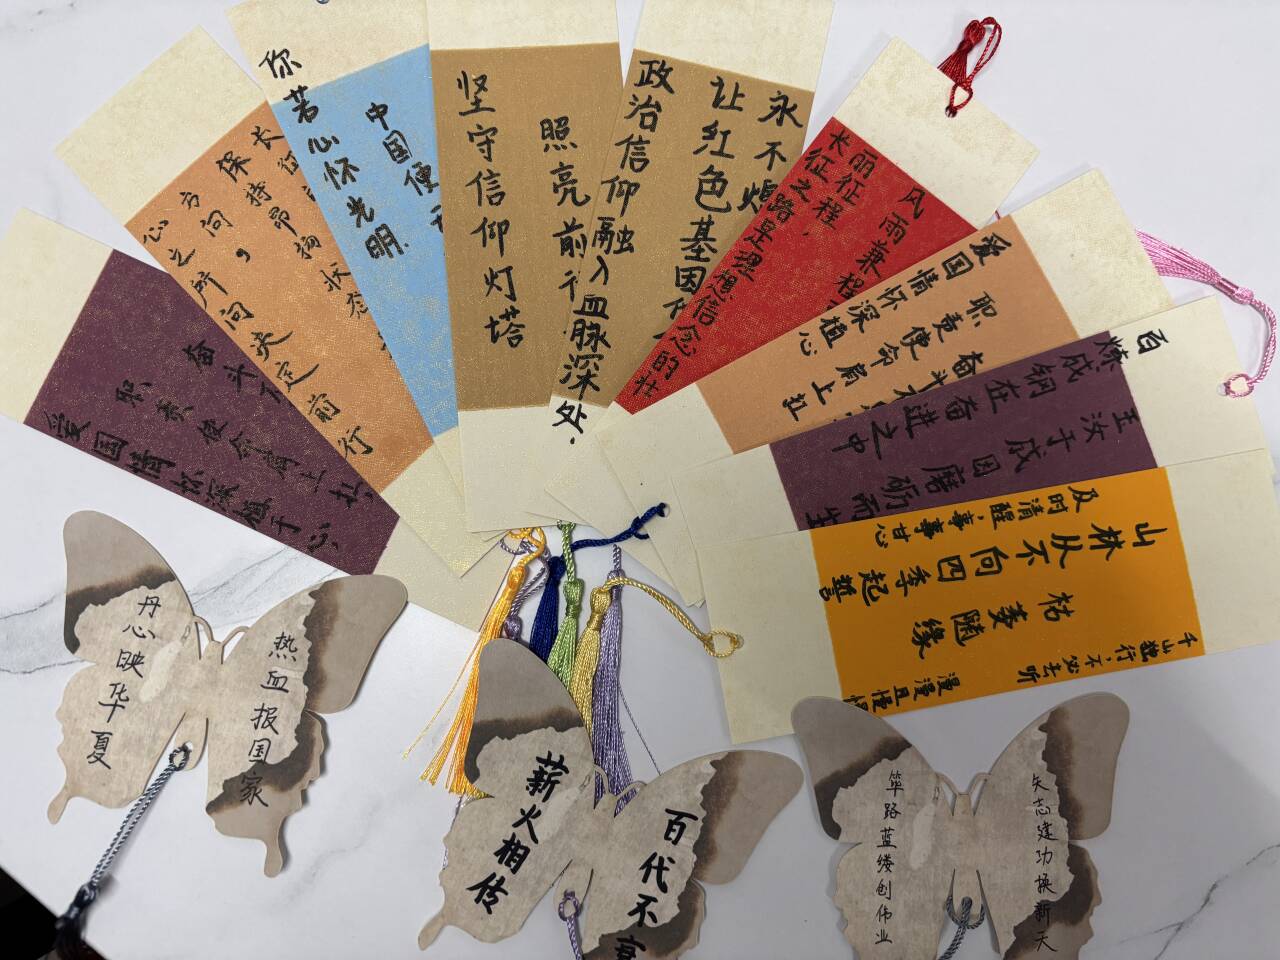 爱国情怀深植于心,
职责使命肩上扛,
奋斗
心之所向决定前行
方向,
保持昂扬状态
长征
你若心怀光明
中国便
坚守信仰灯塔
照亮前行
政治信仰融入血脉深处,
让红色基因代
永不熄
长征之路是理想信念的壮
丽征程,
风雨兼程
爱国情怀深植心
职责使命肩上扛
奋斗
百炼成钢在奋进之中
玉汝于成因磨砺而生
及时清醒,事事甘心
山林从不向四季起誓
枯荣随缘
千山独行,不必去听
漫漫且慢慢
丹心映华夏
热血报国家
薪火相传
百代不衰
筚路蓝缕创伟业
矢志建功换新天